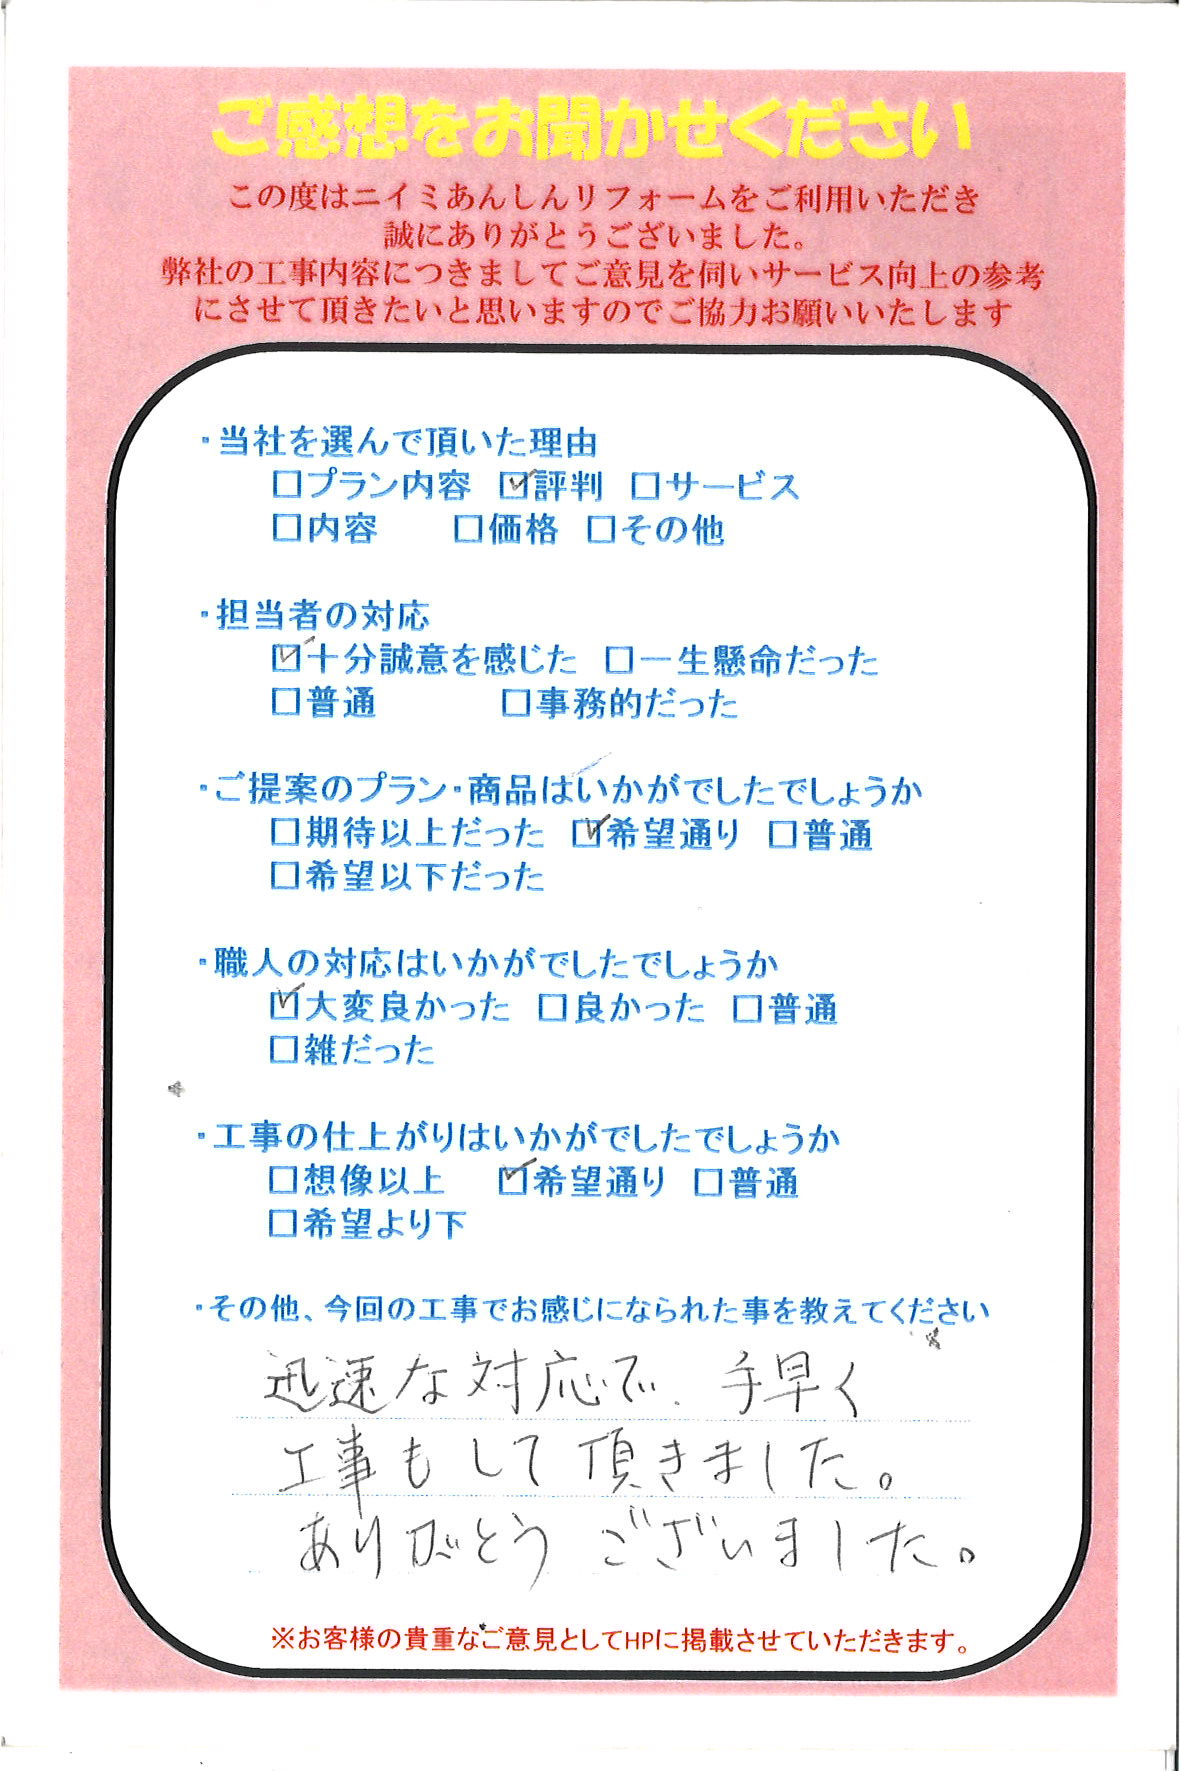 ご感想をお聞かせください
この度はニイミあんしんリフォームをご利用いただき
誠にありがとうございました。
弊社の工事内容につきましてご意見を伺いサービス向上の参考
にさせて頂きたいと思いますのでご協力お願いいたします
・当社を選んで頂いた理由
□プラン内容 ☑評判 □サービス
□内容 □価格 □その他
・担当者の対応
☑十分誠意を感じた □一生懸命だった
□普通 □事務的だった
・ご提案のプラン・商品はいかがでしたでしょうか
□期待以上だった ☑希望通り □普通
□希望以下だった
・職人の対応はいかがでしたでしょうか
☑大変良かった □良かった □普通
□雑だった
・工事の仕上がりはいかがでしたでしょうか
□想像以上 ☑希望通り □普通
□希望より下
・その他、今回の工事でお感じになられた事を教えてください
迅速な対応で、手早く
工事もして頂きました。
ありがとうございました。
※お客様の貴重なご意見としてHPに掲載させていただきます。